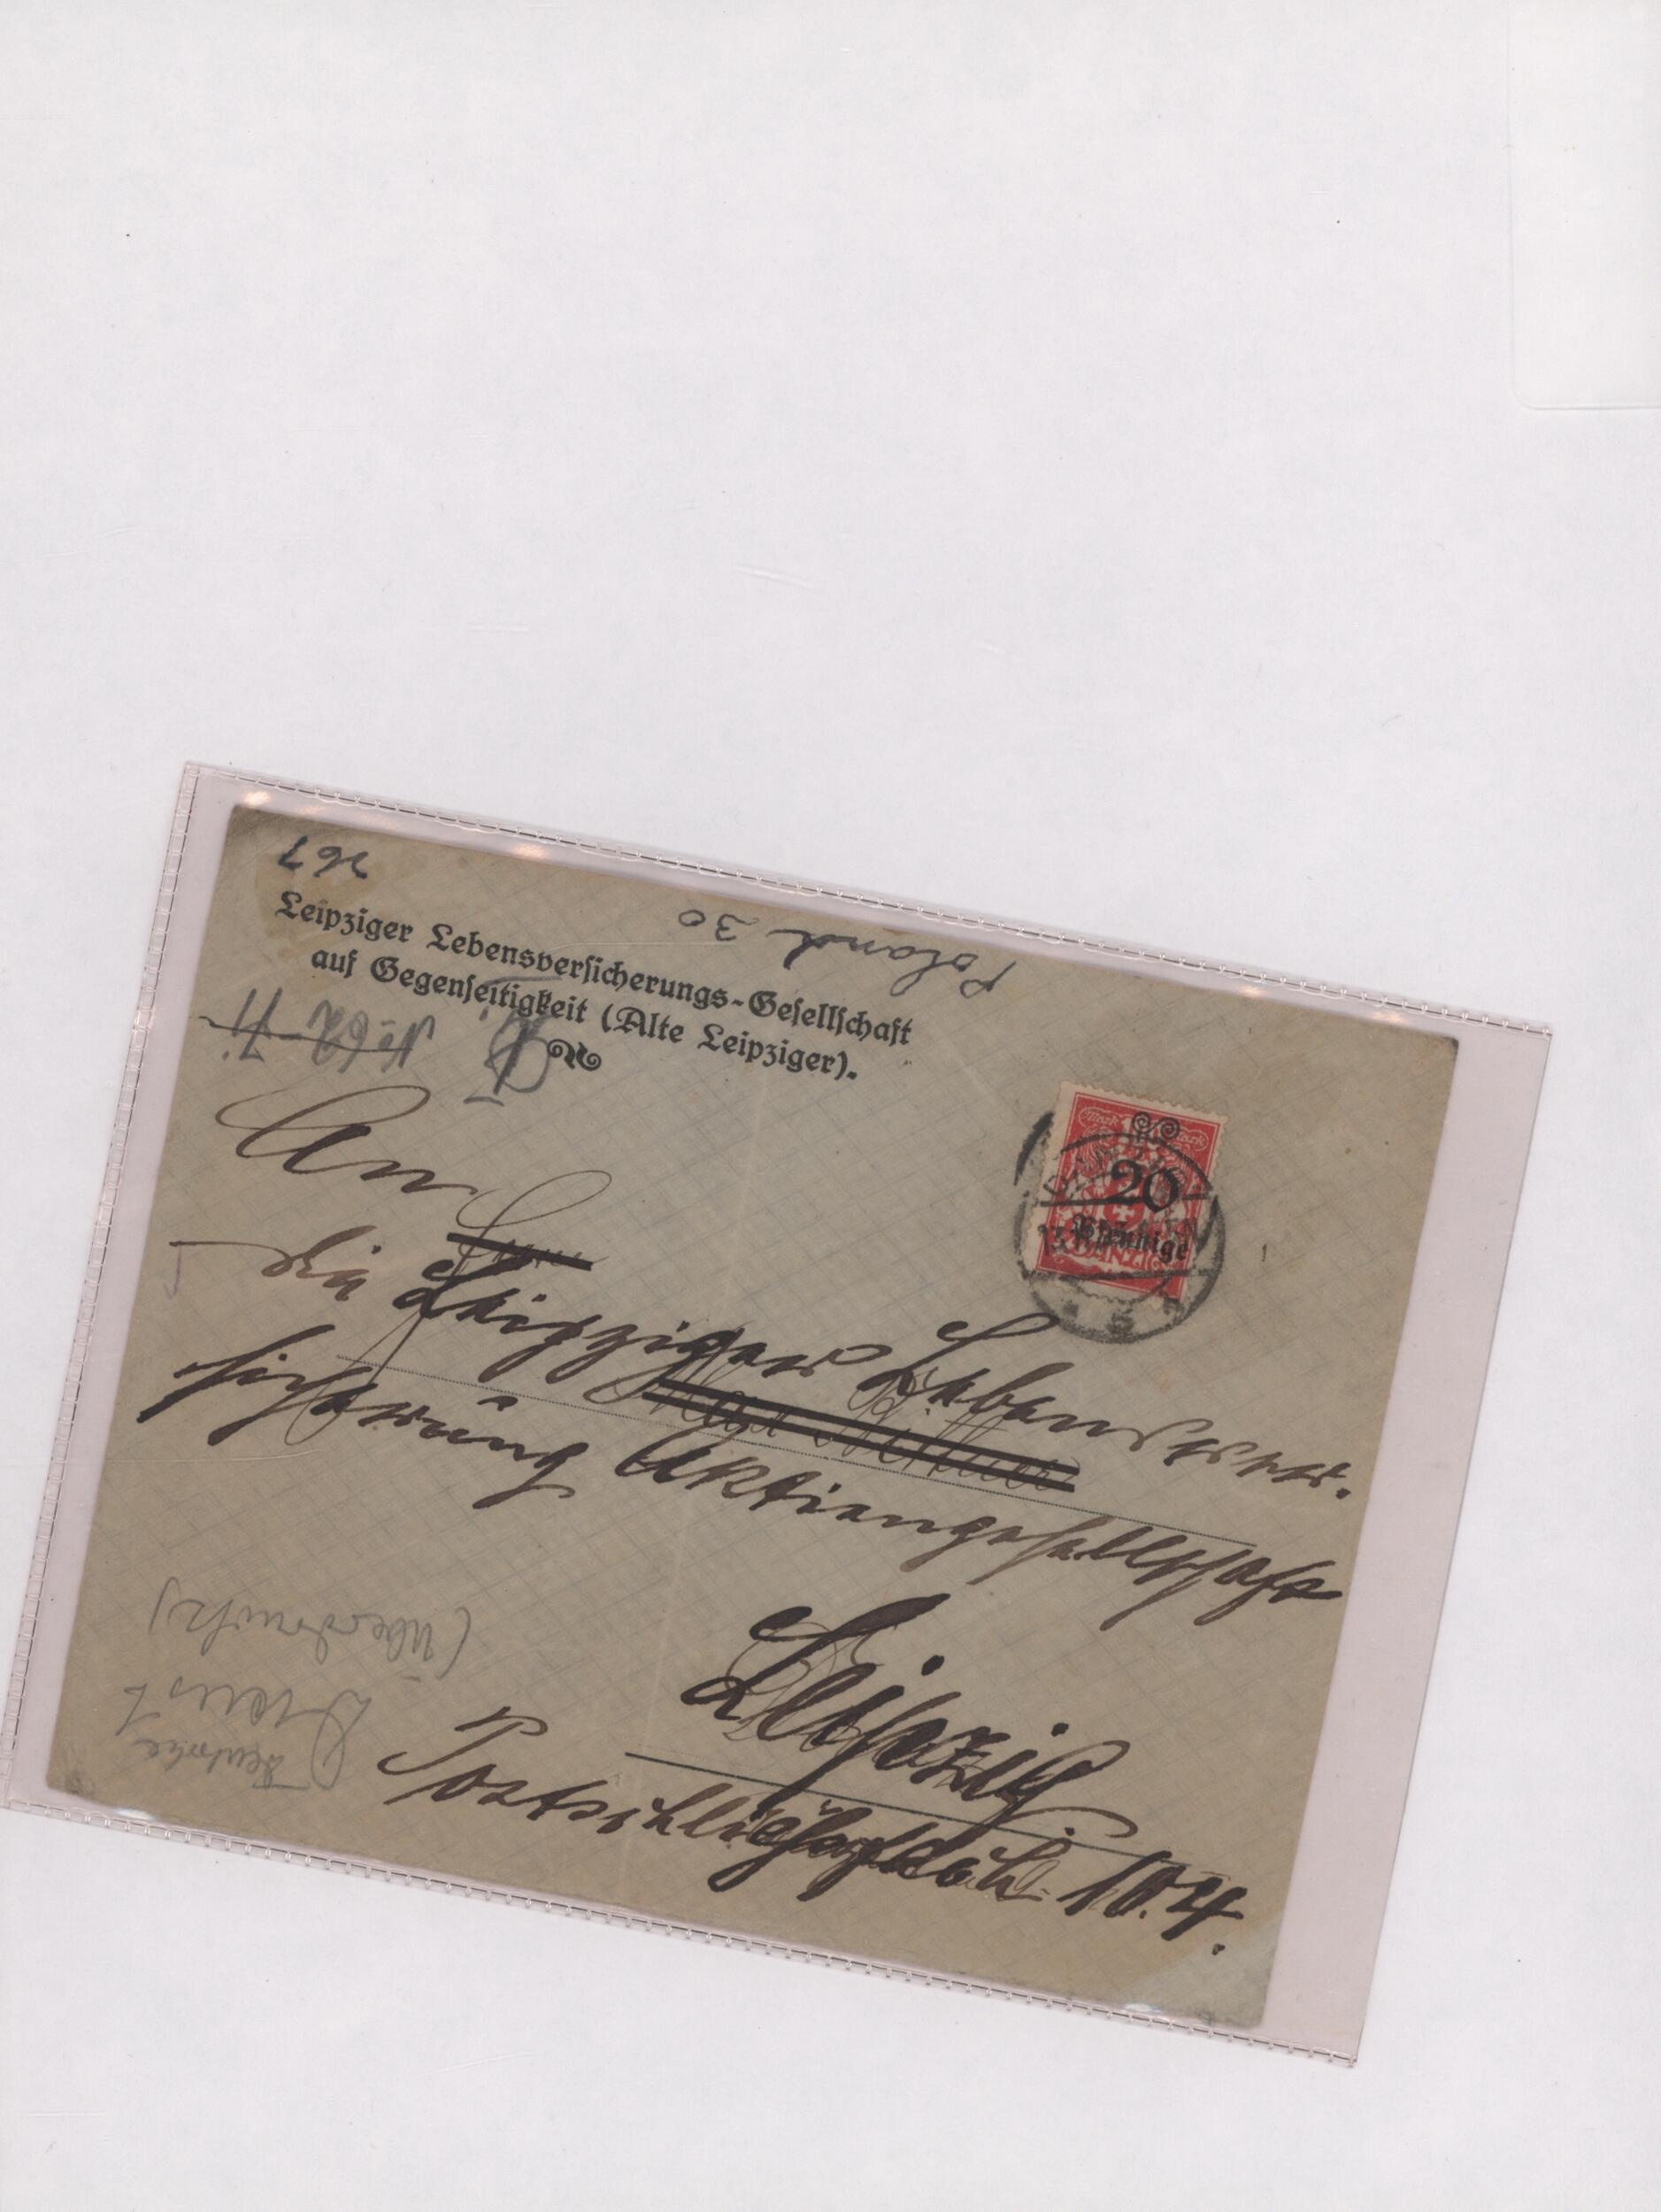 767
Poland 30
Leipziger Lebensversicherungs-Gesellschaft
auf Gegenseitigkeit (Alte Leipziger).
No 62
An
die Leipziger Lebensver-
sicherung Aktiengesellschaft
Leipzig
Postschließfach 104.
Mark Mark
20
Pfennige
DANZIG
(Überdruck)